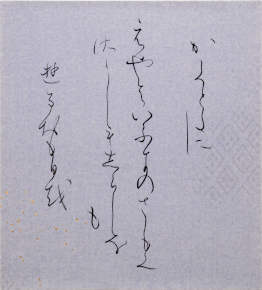 かくとたに
えやはいふきのさしもく
さしもしらしな
も
ゆるおもひを